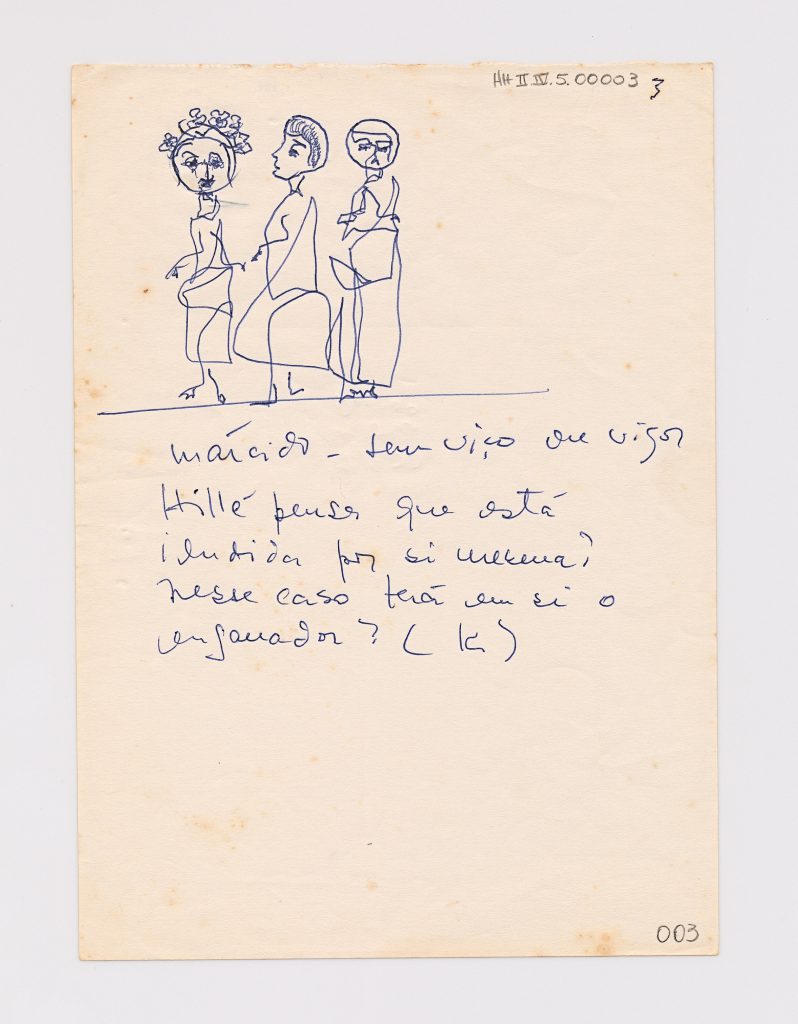 HH II.IV.5.00003 3
márcido - sem viço ou vigor
Hillé pensa que está
iludida por si mesma?
Nesse caso terá em si o
enganador? (K)
003